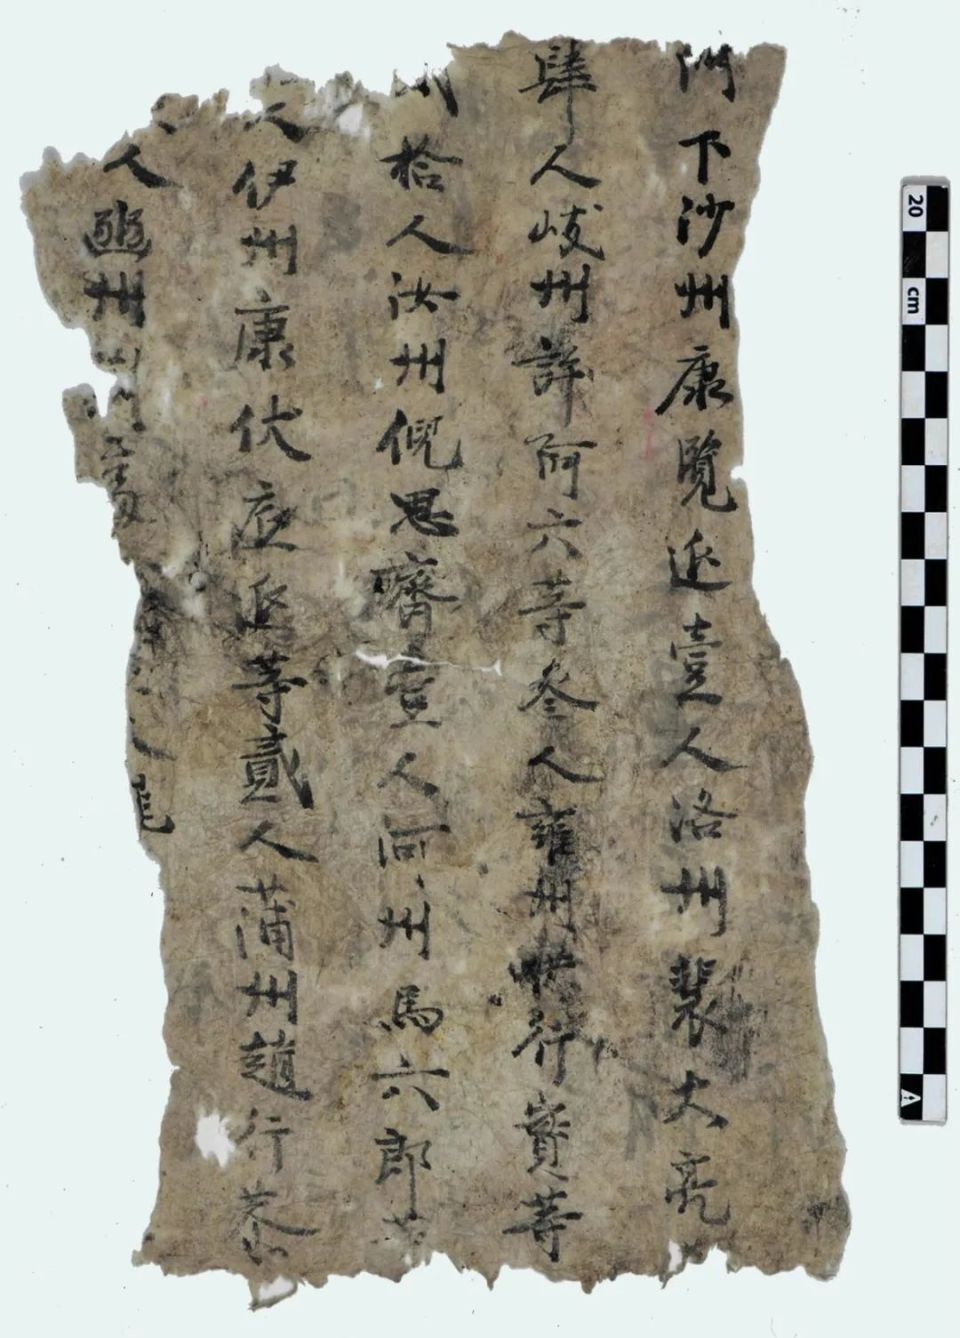 州下沙州康覽延壹人洛州裴大亮
肆人岐州許阿六等叁人雍州行寳等
拾人汝州倪思齊壹人河州馬六郎等
人伊州康伏延等貳人蒲州趙行恭
人豳州